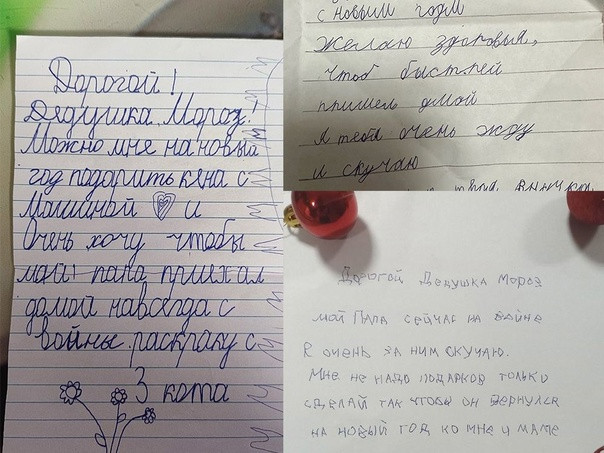 Дорогой!
Дедушка Мороз!
Можно мне на новый
год подарить кена с
Машиной и
Очень хочу чтобы
май папа приехал
домой навсегда с
войны. раскраку с
3 кота
с новым годм
желаю здоровья,
чтоб быстрей
пришел дмой
я тебя очень жду
и скучаю
твоя внучка
Дорогой Дедушка Мороз
мой Папа сейчас на войне
Я очень за ним скучаю.
Мне не надо подарков только
сделай так чтобы он вернулся
на новый год ко мне и маме